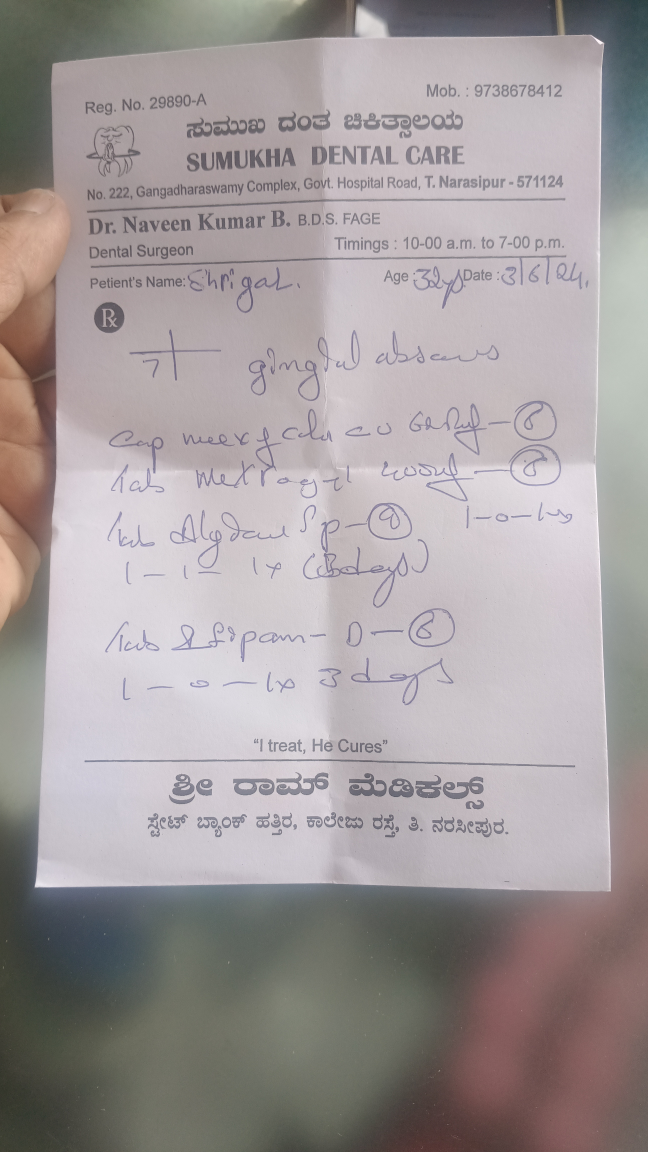 Reg. No. 29890-A
Mob. : 9738678412
ಸುಮುಖ ದಂತ ಚಿಕಿತ್ಸಾಲಯ
SUMUKHA DENTAL CARE
No. 222, Gangadharaswamy Complex, Govt. Hospital Road, T. Narasipur - 571124
Dr. Naveen Kumar B. B.D.S. FAGE
Dental Surgeon
Timings : 10-00 a.m. to 7-00 p.m.
Petient's Name: Age : 32 Date : 3/6/24,
Rx
7
Cap
Tab Metrogyl - 6
1-0-1
Tab Sp - 9
1 - 1 - 1x (3days)
Tab - D - 6
1 - 0 - 1x 3 days
"I treat, He Cures"
ಶ್ರೀ ರಾಮ್ ಮೆಡಿಕಲ್ಸ್
ಸ್ಟೇಟ್ ಬ್ಯಾಂಕ್ ಹತ್ತಿರ, ಕಾಲೇಜು ರಸ್ತೆ, ತಿ. ನರಸೀಪುರ.